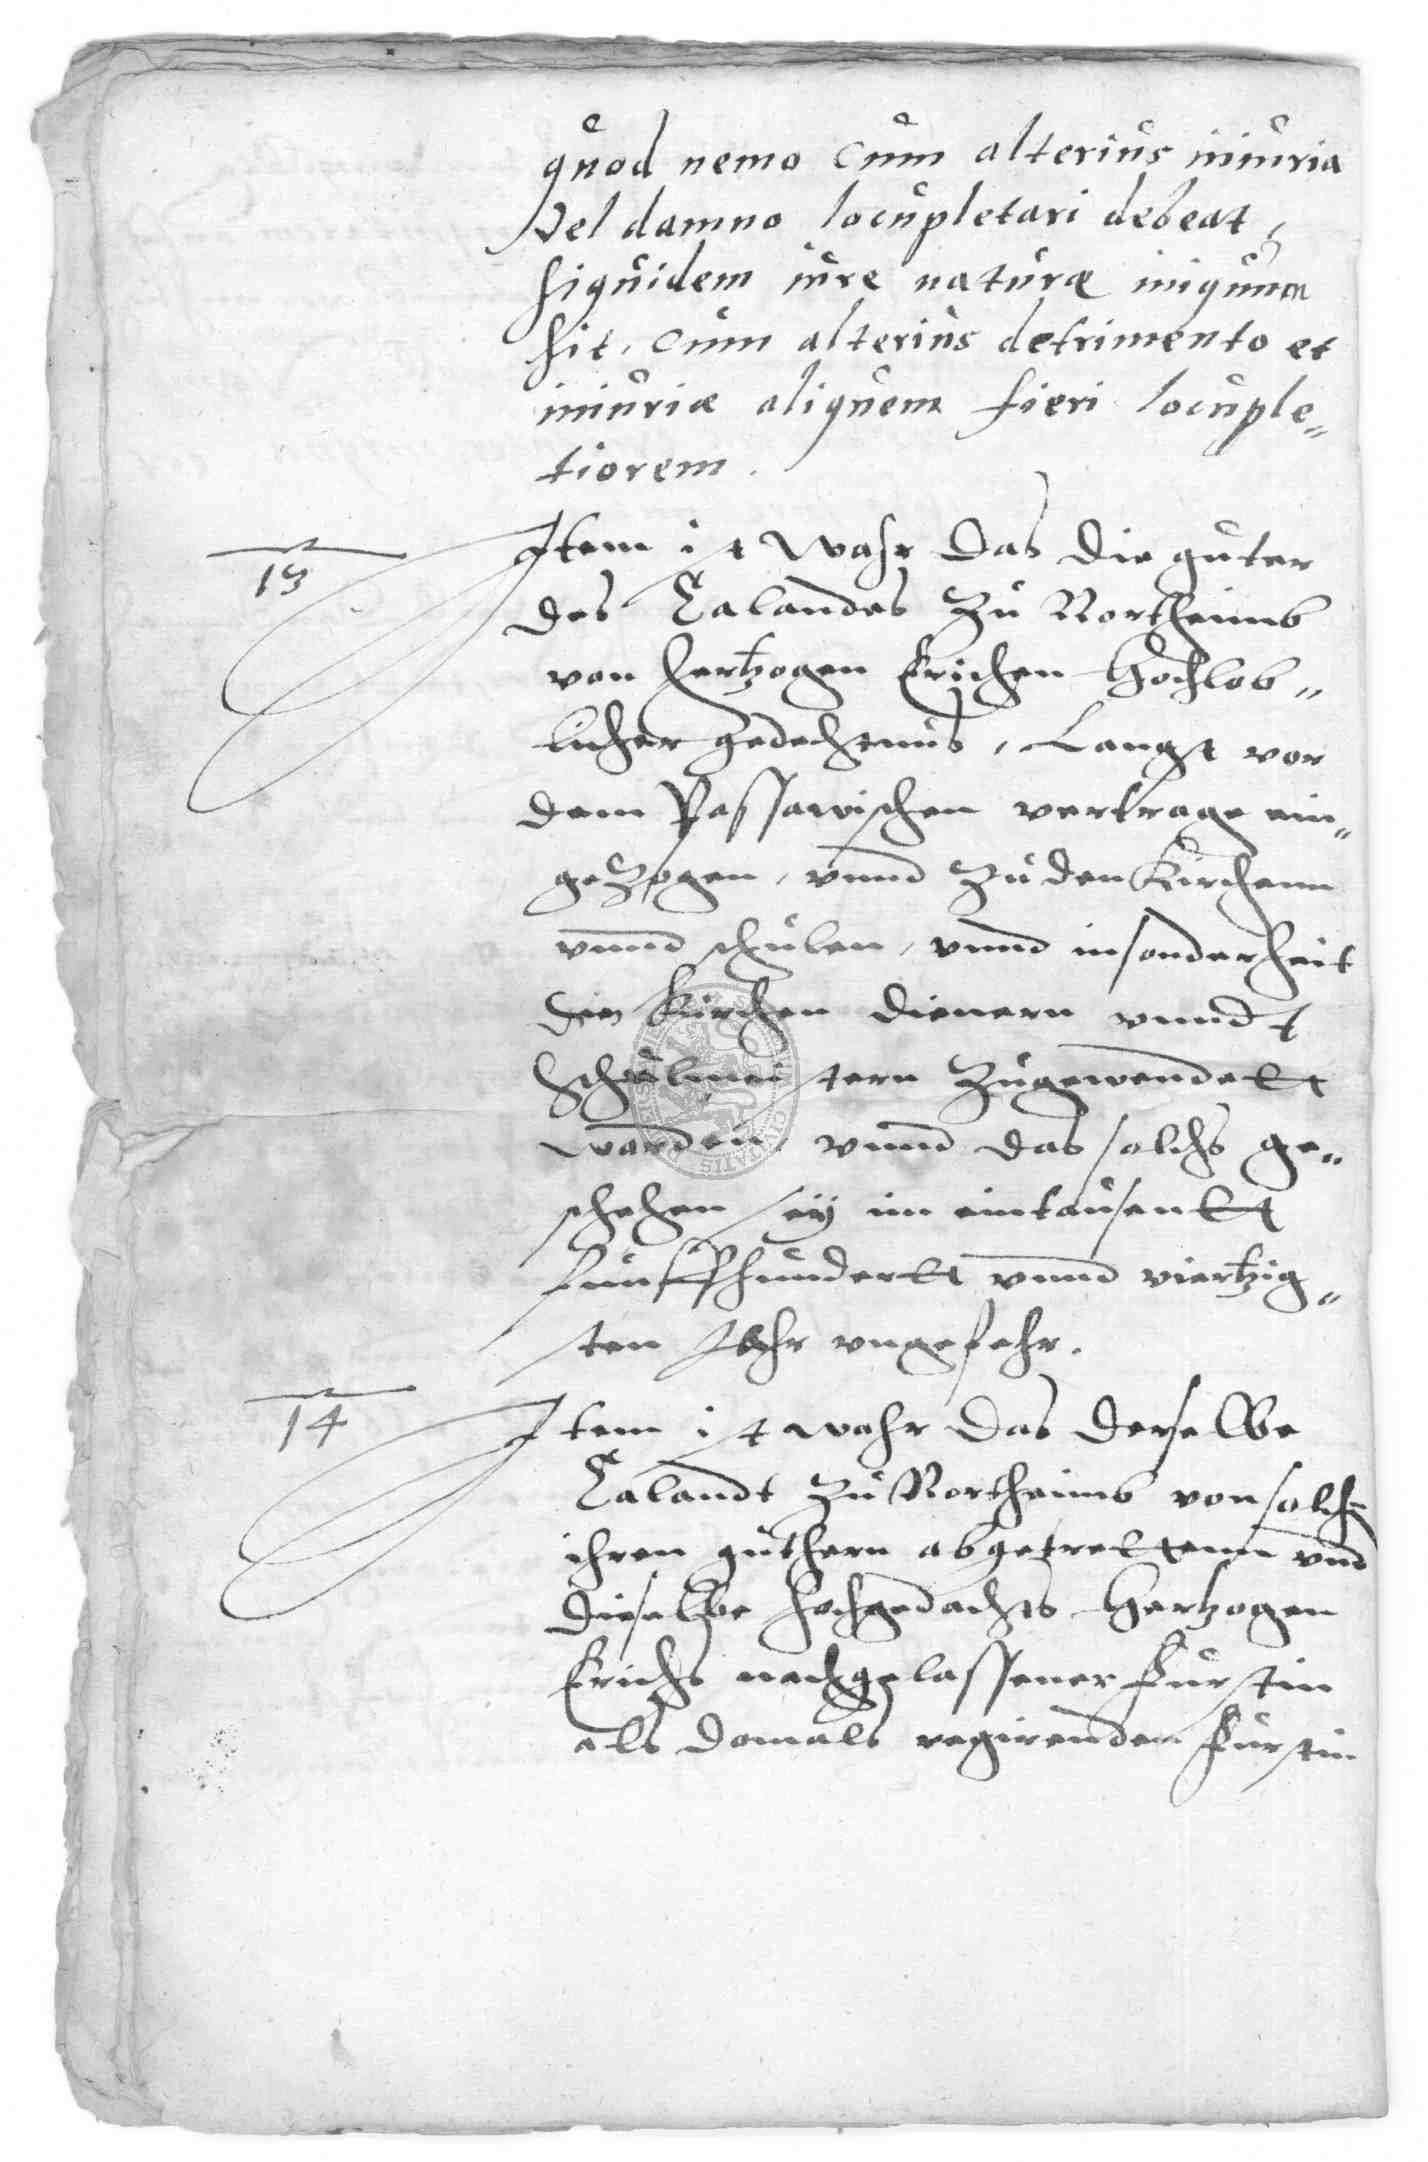 quod nemo cum alterius iniuria
Vel damno locupletari debeat,
siquidem iure naturæ iniquum
sit, cum alterius detrimento et
iniuriæ aliquem fieri locuple„
tiorem.
13
Item ist wahr das die guter
des Calandes zu Northeimb
von Hertzogen Erichen Hochlob„
licher gedechtnus, Langst vor
dem Passawischen vertrage ein„
gezogen, vnnd zu den Kirchenn
vnnd schulen, vnnd insonderheit
den Kirchen dienern vnndt
Schulmeistern zugewendett
worden, vnnd das solchs ge„
schehen sey im eintausentt
funffhundertt vnnd viertzig„
sten Jahr vngefehr.
14
Item ist wahr das derselbe
Calandt zu Northeimb von solch
ihren guthern abgetrettenn vnd
dieselbe hochgedachts Hertzogen
Erichs nachgelassener Furstin
als domals regirender Furstin